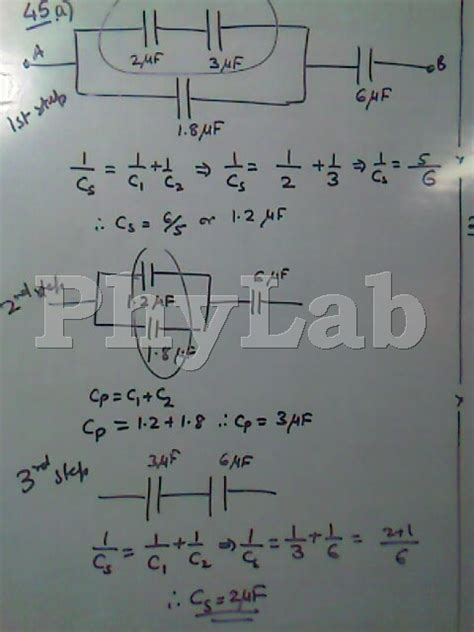 45a)
A
2μF 3μF
B
1.8μF
6μF
1st step
1/Cs = 1/C1 + 1/C2 ⇒ 1/Cs = 1/2 + 1/3 ⇒ 1/Cs = 5/6
∴ Cs = 6/5 or 1.2 μF
2nd step
6μF
1.2μF
PhyLab
1.8μF
Cp = C1 + C2
Cp = 1.2 + 1.8 ∴ Cp = 3μF
3rd step
3μF 6μF
1/Cs = 1/C1 + 1/C2 ⇒ 1/Cs = 1/3 + 1/6 = 2+1/6
∴ Cs = 2μF